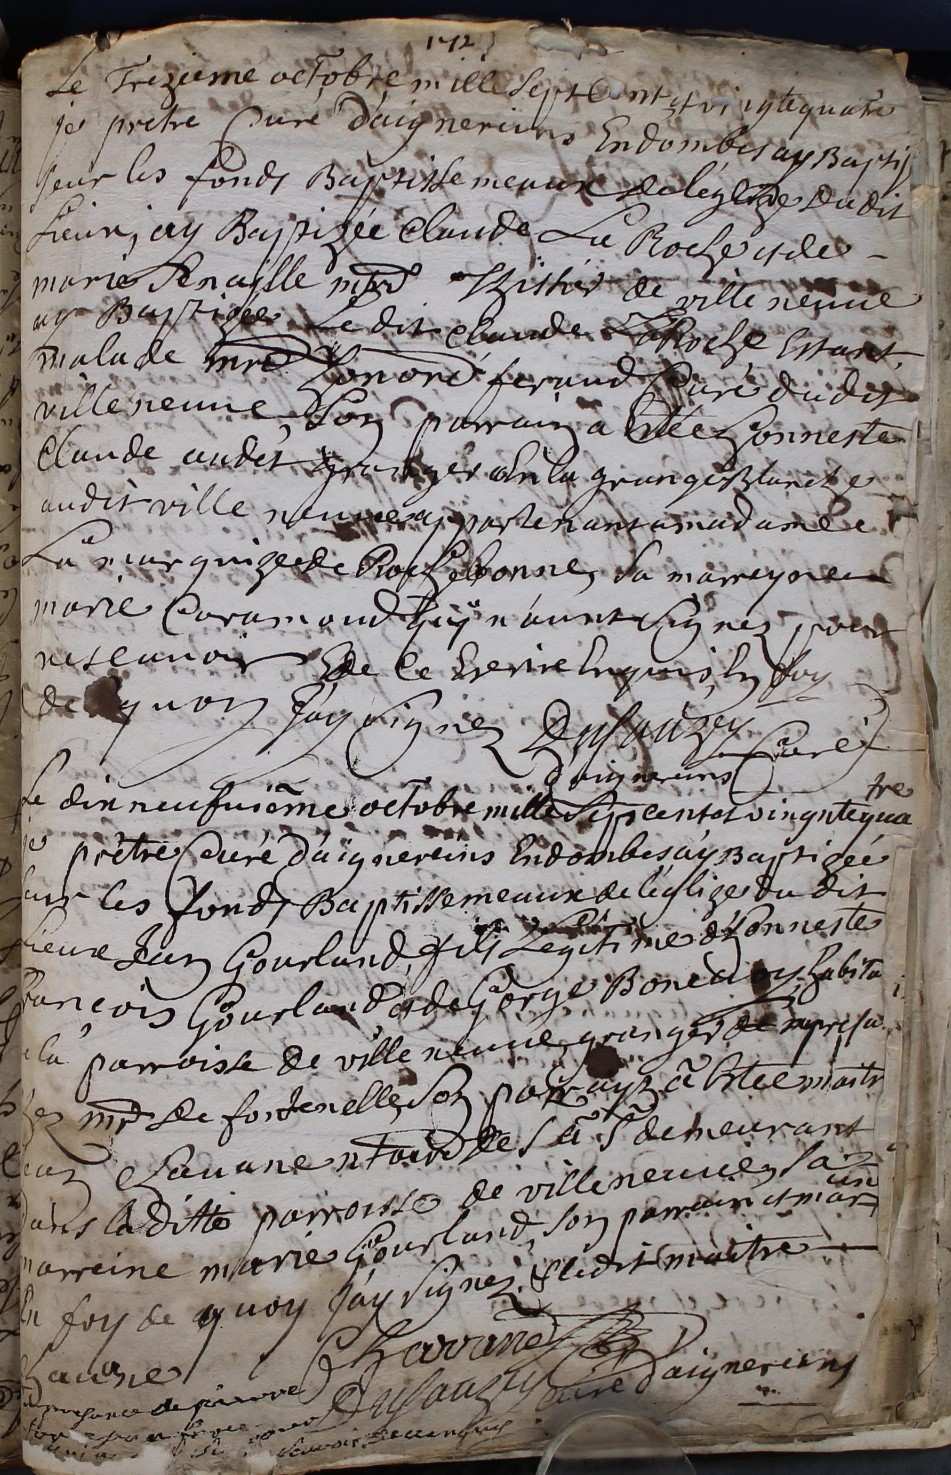 1724
Le Trezieme octobre mille Sept Cent et vingtequatre
je prétre Curé daignereins Endombes ay Baptisé
Seur les fonds Baptissemeaux de léglize du dit
Lieux, jay Baptizée Claude La Roche et de
marie Senaille mre de villeneuve
ay Baptizée Le dit Claude La Roche Estant
malade mre honoré ferand Curé du dit
villeneuve, Son parrain a Eté honneste
Claude audet granger En la grange Blanche
audit villeneuve appartenant a madame
La marquize de Rochebonne, Sa marreyne
marie Caramond quy n'aunt Signez pour
ne scavoir De Ce Ecrire Enquis En foy
de quoy Jay Signez Dusauzey Curé
Daignereins
Le dinneufuième octobre mille Sepcentet vingntequa
tre
je prétre Curé Daignereins Endombes ay Baptizée
sur les fonds Baptissemeaux de légliz du dit
Lieux Jean Gourland, fils Legitime d'honneste
francois Gourland et de George Bonea habita
la parroisse de villeneuve, granger de
mr de fontenelle, Son parrayn â Etée maitr
Chavane demeurant
dans la ditte parroisse de villeneuve, Sa
marreine marie Gourland, Son parrain et mar
En foy de quoy Jay Signez, Ledit maitre
Chavane Chavane
Dusauzey Curé Daignereins
presance de pierre